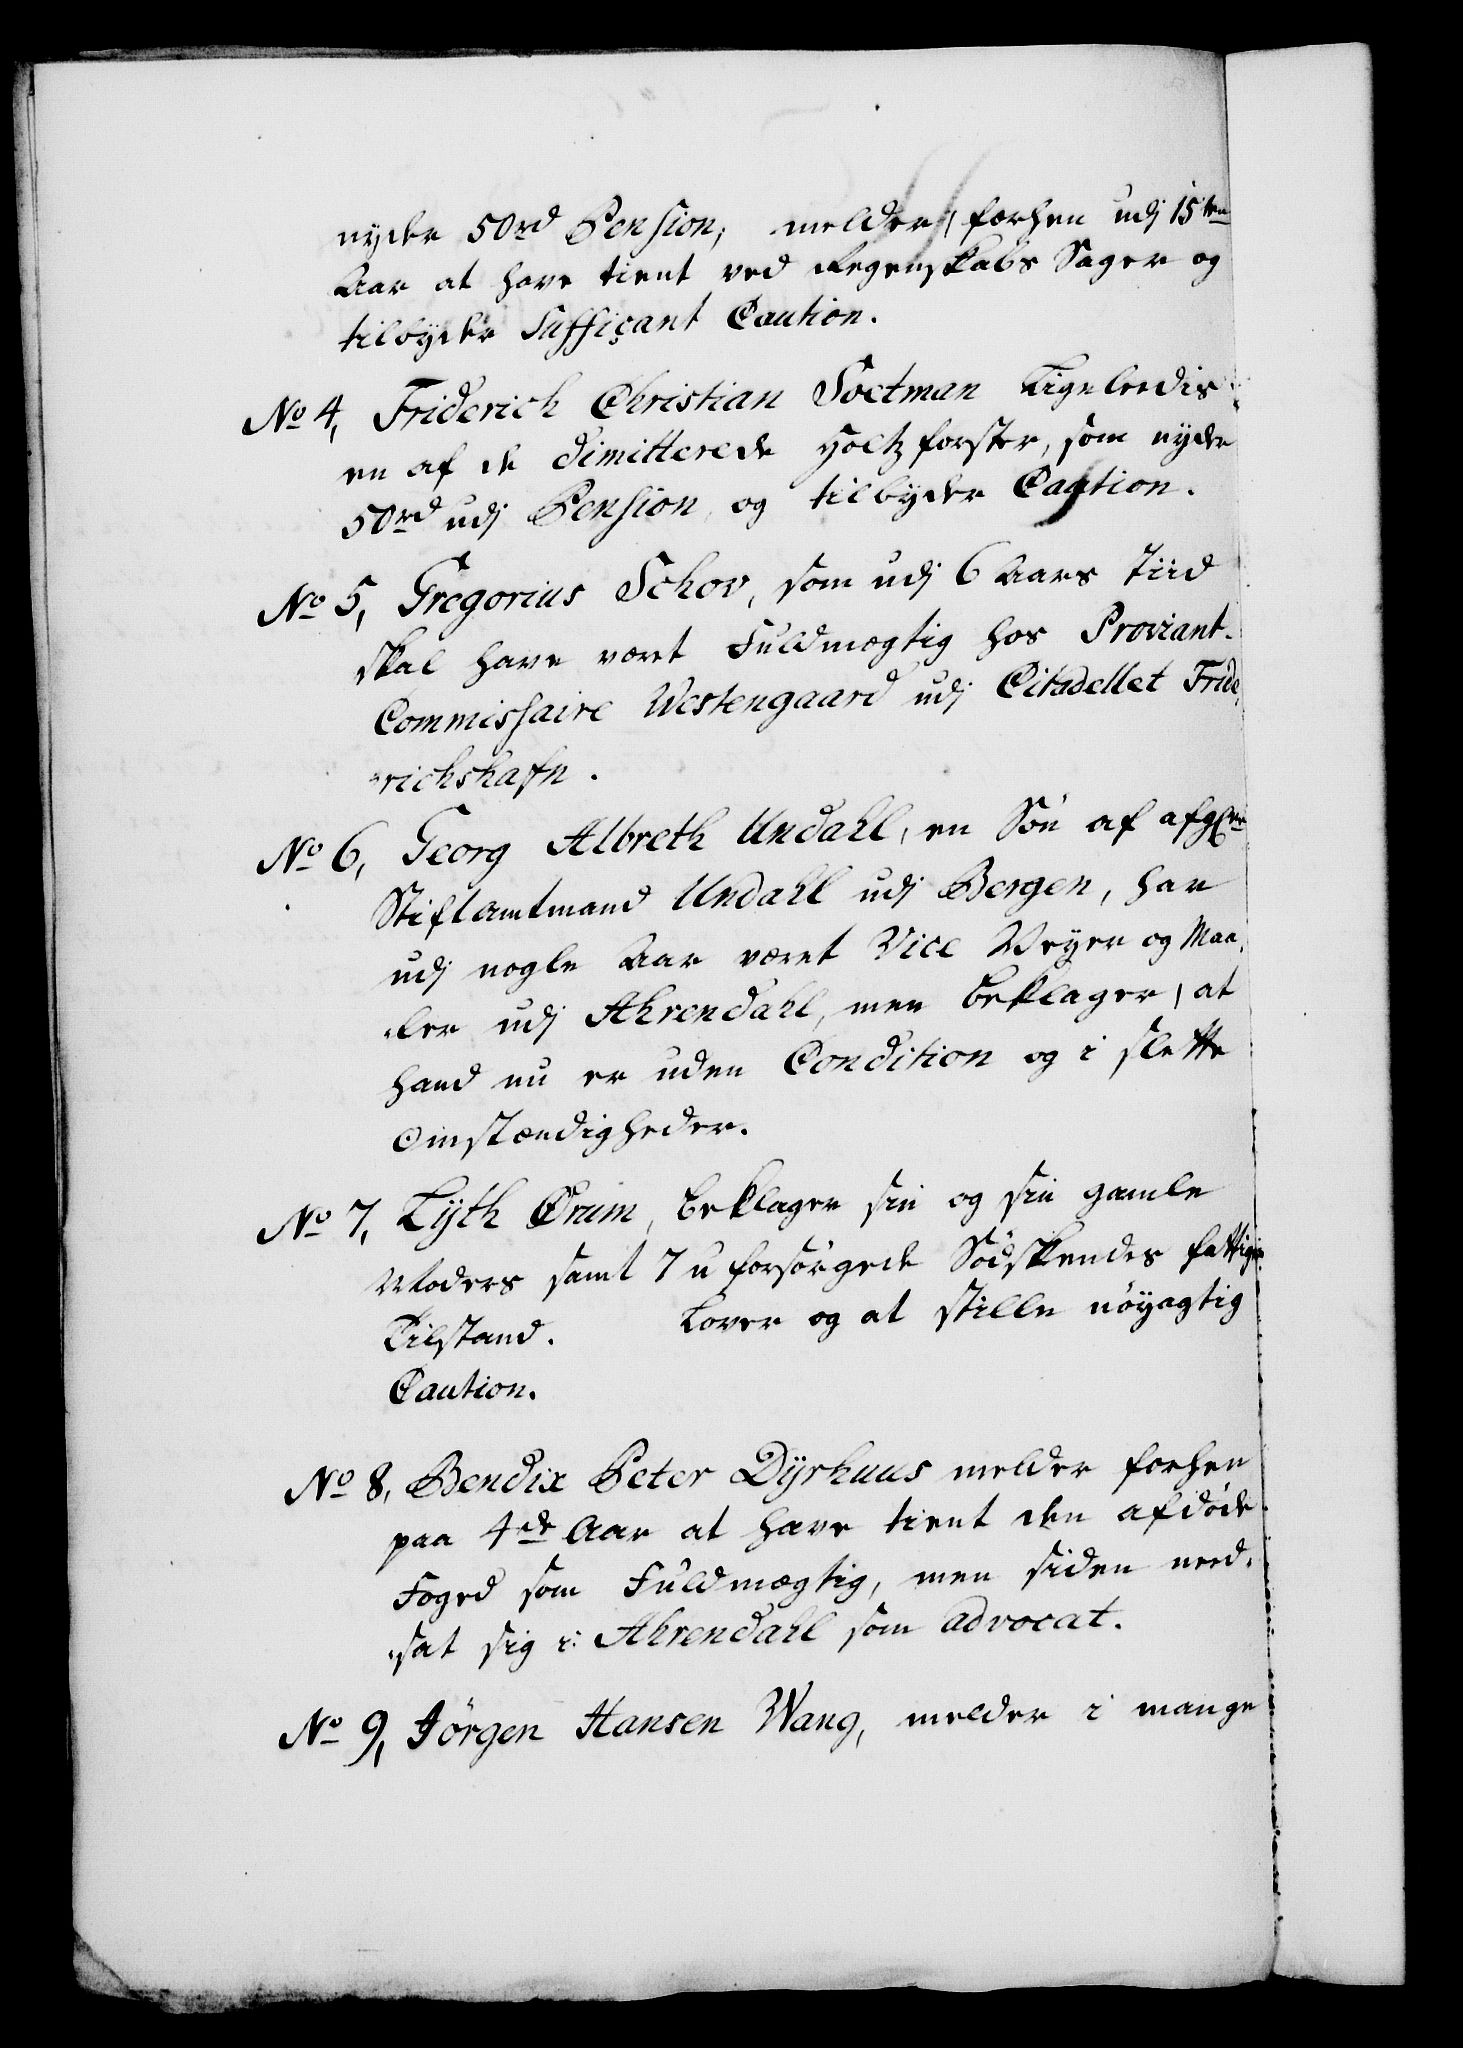 nyder 50rd Pension, melder, forhen udj 15ten
Aar at have tient ved Regenskabs Sager og
tilbyder Suffiçant Caution.
No 4, Friderich Christian Soetman Ligeleedis
en af de dimitterede Holtzforster, som nyder
50rd udj Pension, og tilbyder Caution.
No 5, Gregorius Schov, som udj 6 Aars Tiid
skal have været Fuldmægtig hos Proviant-
Commissaire Westengaard udj Citadellet Fride,
-richshafn.
No 6, Georg Albreth Undahl, en Søn af afgne
Stiftamtmand Undahl udj Bergen, har
udj nogle Aar været Vice Veyer og Maa,
-ler udj Ahrendahl, men beklager, at
hand nu er uden Condition og i slette
Omstændigheder.
No 7, Lyth Ørum, beklager sin og sin gamle
Moders samt 7 uforsørgede Sødskendes fattige
Tilstand. Lover og at stille nøyagtig
Caution.
No 8, Bendix Peter Dyrhuus melder forhen
paa 4de Aar at have tient den afdøde
Foged som Fuldmægtig, men siden need,
-sat sig i Ahrendahl som advocat.
No 9, Jørgen Hansen Wang, melder i mange